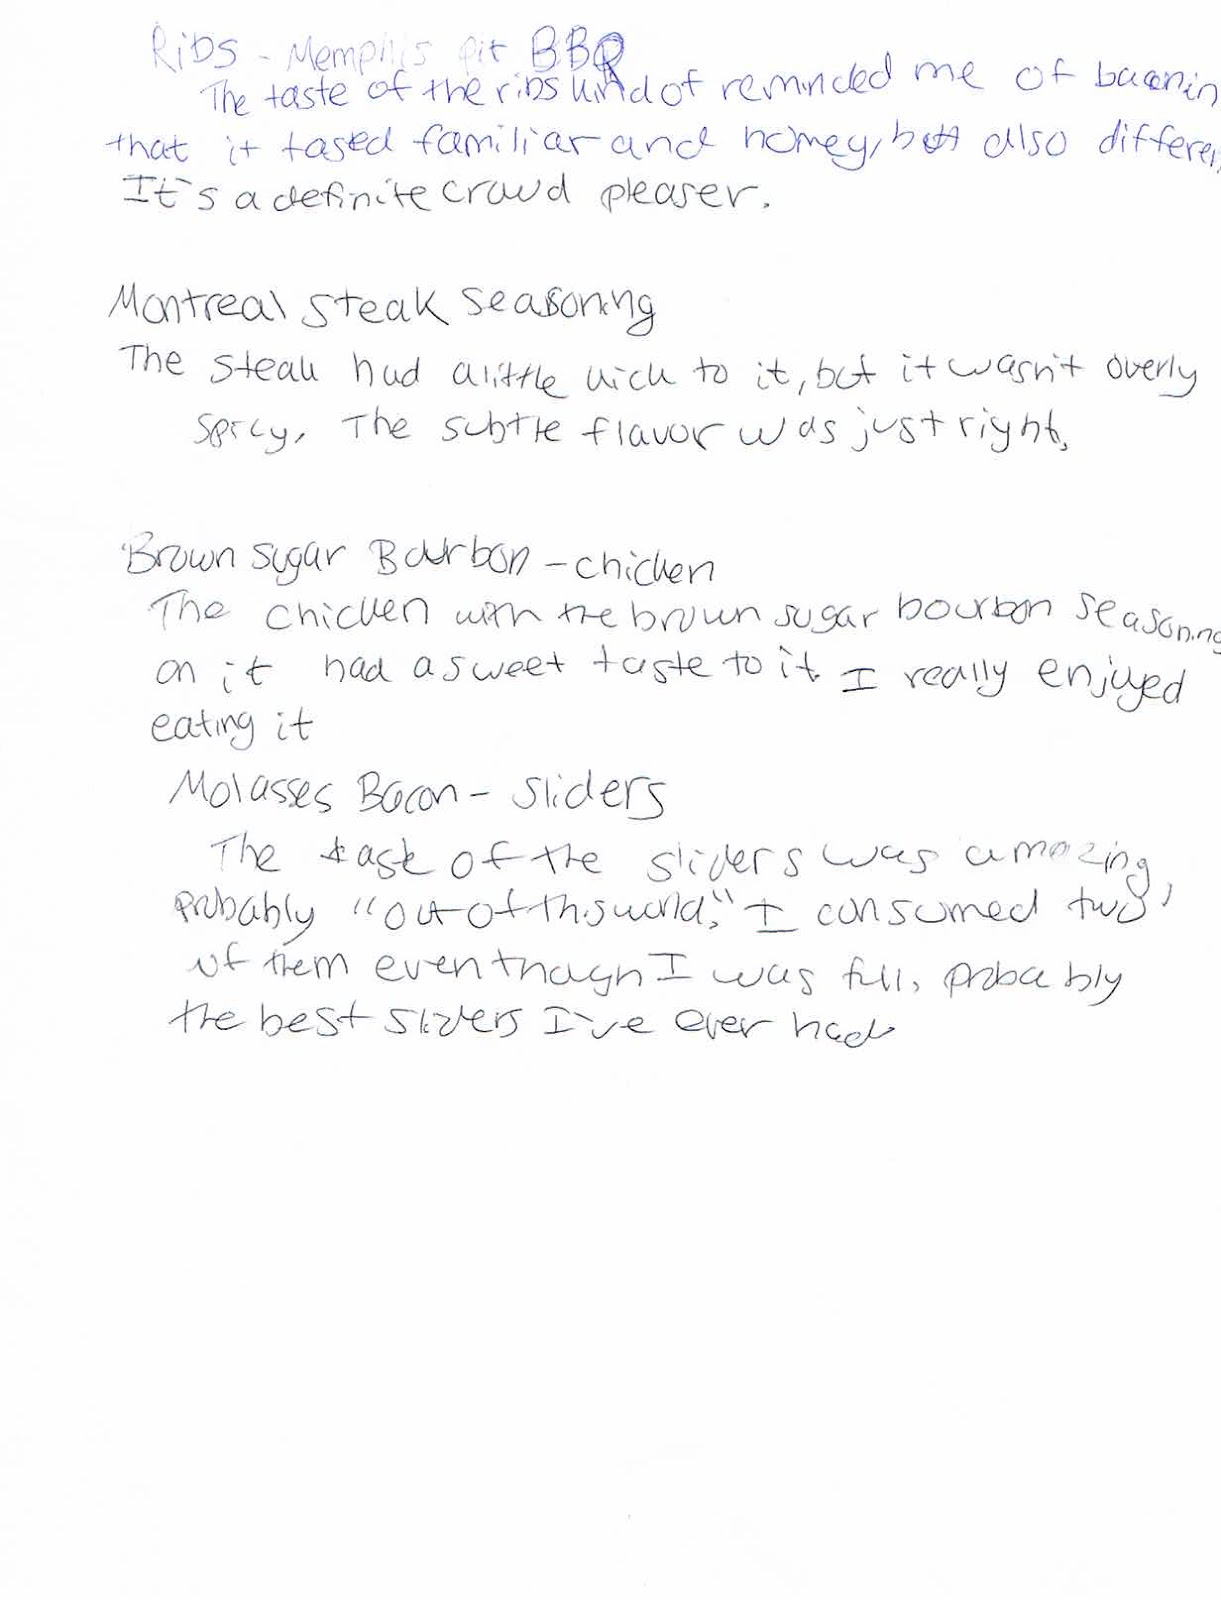 Ribs - Memphis pit BBQ
The taste of the ribs kind of reminded me of bacon in
that it tased familiar and homey, but also differen
It's a definite crowd pleaser.
Montreal steak seasoning
The steak had a little kick to it, but it wasn't overly
spicy. The subtle flavor was just right.
Brown sugar Bourbon - chicken
The chicken with the brown sugar bourbon seasoning
on it had a sweet taste to it. I really enjoyed
eating it
Molasses Bacon - sliders
The taste of the sliders was amazing,
probably "out of this world," I consumed two
of them even though I was full, probably
the best sliders I've ever had